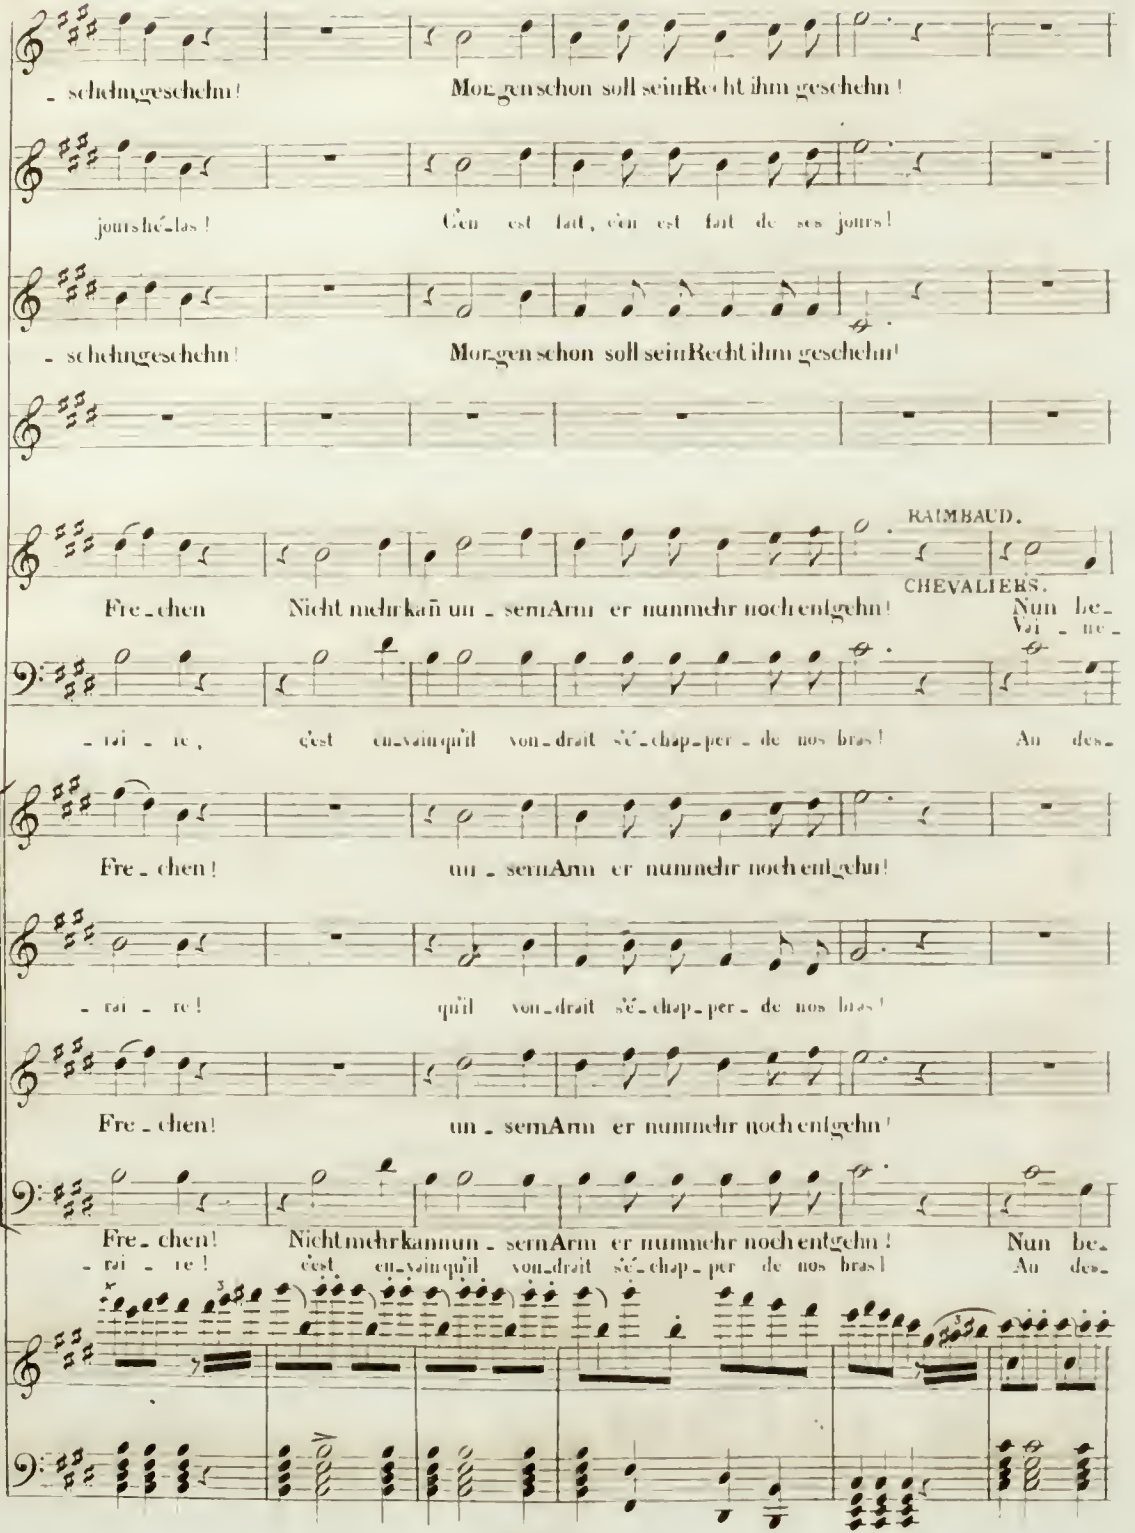 - schehn, geschehn! Mor-gen schon soll sein Recht ihm geschehn!
jours hé-las! C'en est fait, c'en est fait de ses jours!
- schehn geschehn! Mor-gen schon soll sein Recht ihm geschehn!
RAIMBAUD.
CHEVALIERS.
Fre-chen Nicht mehr kañ un-sern Arm er nunmehr noch entgehn! Nun be-
Vai - ne-
- rai - re, c'est en-vain qu'il vou-drait s'é-chap-per-de nos bras! Au des-
Fre-chen! un-sern Arm er nunmehr noch entgehn!
- rai - re! qu'il vou-drait s'é-chap-per-de nos bras!
Fre-chen! un-sern Arm er nunmehr noch entgehn!
Fre-chen! Nicht mehr kann un-sern Arm er nunmehr noch entgehn! Nun be-
- rai - re! c'est en-vain qu'il vou-drait s'é-chap-per de nos bras! Au des-
3 3